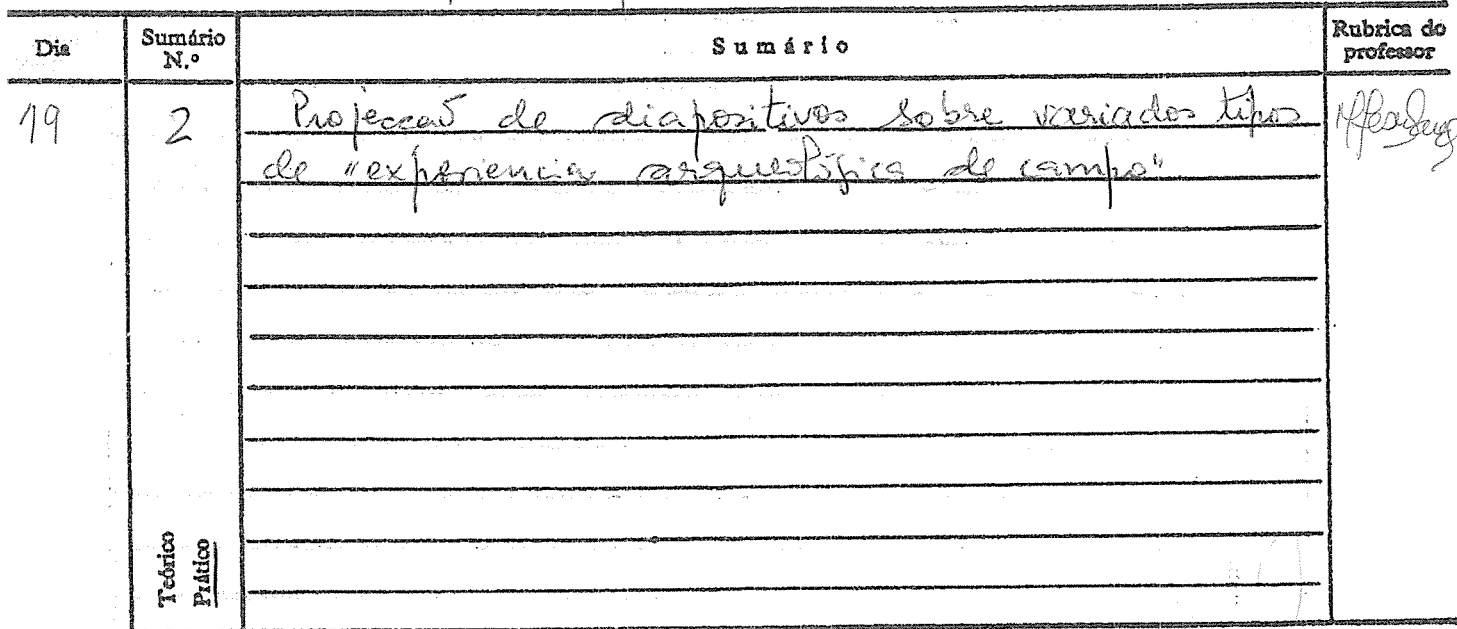 Dia
Sumário N.º
Sumário
Rubrica do professor
19
2
Projecção de diapositivos sobre variados tipos
de "experiencia arqueológica de campo".
Teórico
Prático